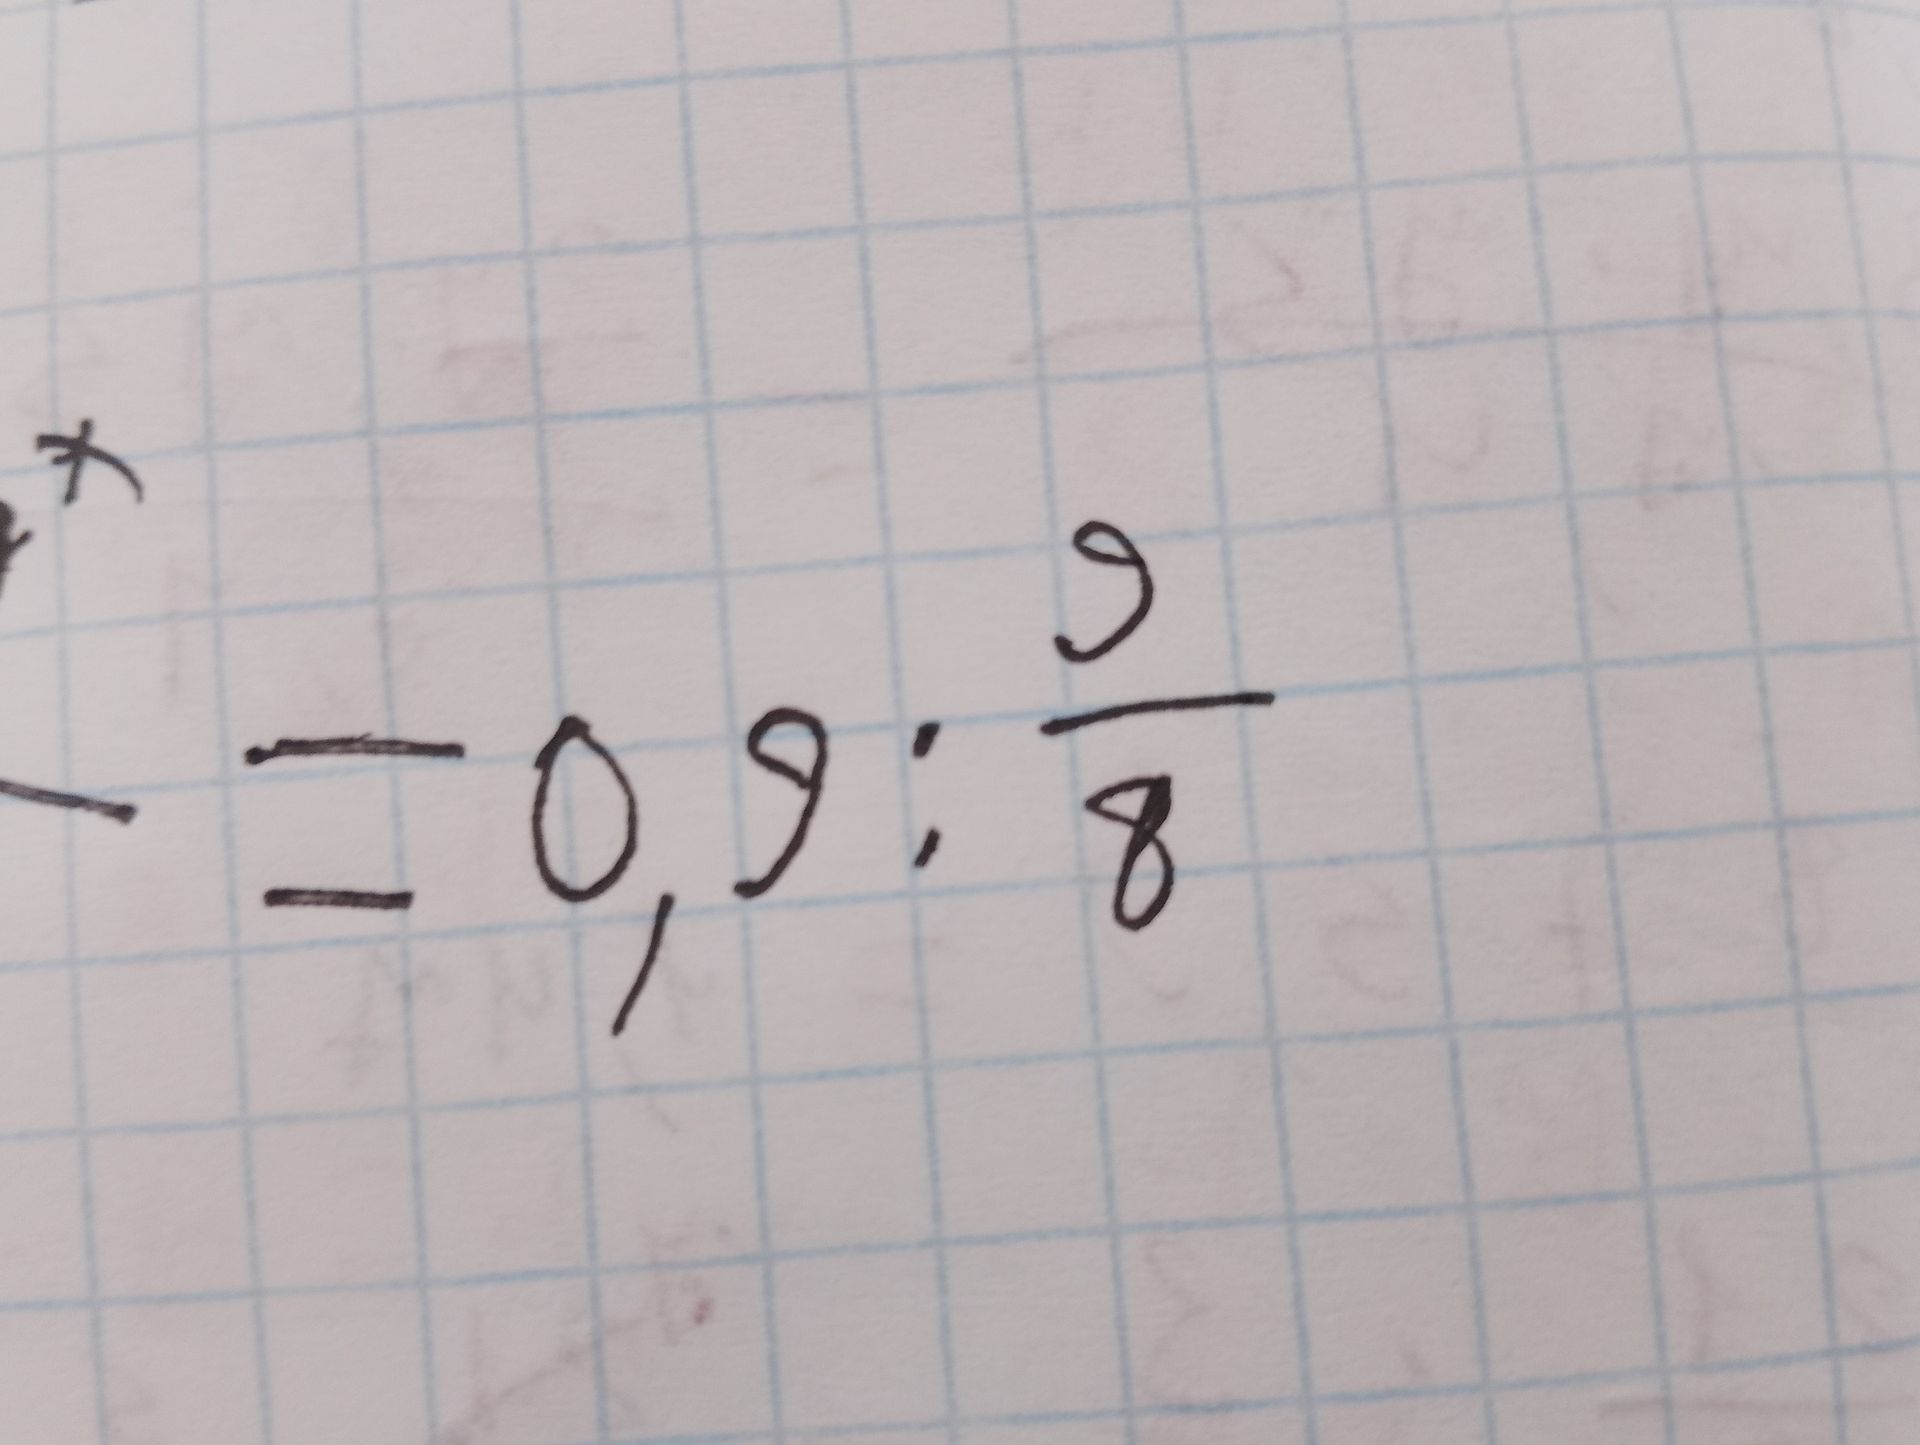 = 0,9 : 9/8